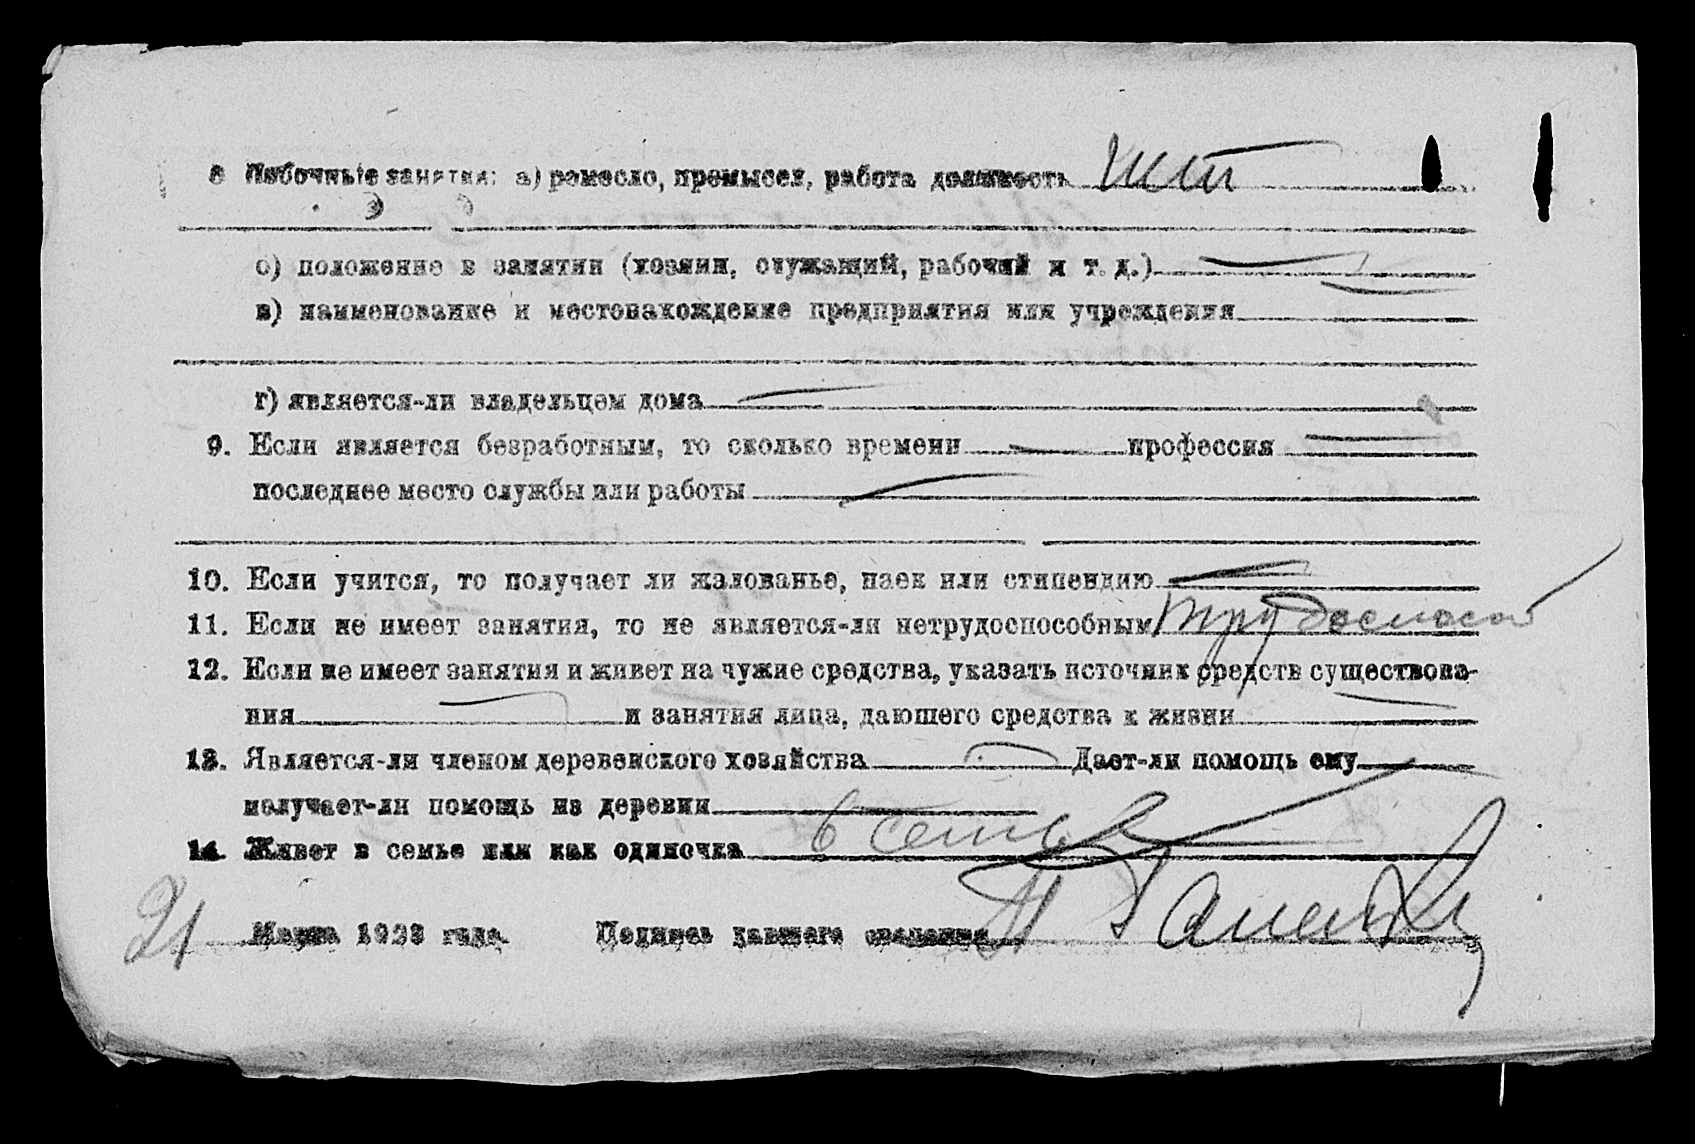 8 Побочные занятия: а) ремесло, промысел, работа должность нет
б) положение в занятии (хозяин, служащий, рабочий и т. д.)
в) наименование и местонахождение предприятия или учреждения
г) является-ли владельцем дома
9. Если является безработным, то сколько времени профессия
последнее место службы или работы
10. Если учится, то получает ли жалованье, паек или стипендию
11. Если не имеет занятия, то не является-ли нетрудоспособным трудоспособ
12. Если не имеет занятия и живет на чужие средства, указать источник средств существова-
ния и занятия лица, дающего средства к жизни
13. Является-ли членом деревенского хозяйства Дает-ли помощь ему
получает-ли помощь из деревни
14. Живет в семье или как одиночка в семье
21 Марта 1923 года. Подпись давшего сведения